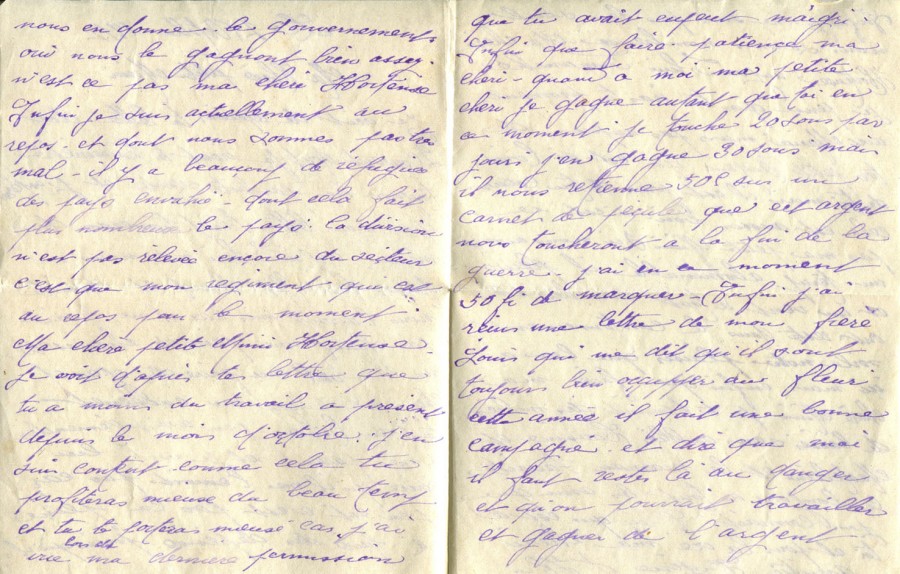 nous en donne. le gouvernement
oui nous le gagnont bien assez.
n'est ce pas ma chéri Hortense
Enfin je suis actuellement au
repos. et dont nous sommes pas tro
mal - il y a beaucoup de refugiés
des pays envahie - dont cela fait
plus nombreux le pays. la division
n'est pas relevée encore du secteur
c'est que mon regiment qui est
au repos pour le moment
Ma chère petite Mimi Hortense.
Je voit d'apres tes lettre que
tu a moins du travail a present
depuis le mois d'octobre. j'en
suis content comme cela tu
profiteras mieuse du beau temp
et tu te porteras mieuse cas j'ai
vue ma derniere permission
que tu avait enfent maigri.
Enfin que faire. patience ma
chéri - quand a moi ma petite
chéri je gagne autant que toi en
ce moment je touche 20 sous par
jours j'en gagne 30 sous mais
il nous retienne 50c sur un
carnet de pecule que cet argent
nous toucheront a la fin de la
guerre. j'ai en ce moment
50 fr de marquer - Enfin j'ai
reçus une lettre de mon frère
Louis qui me dit qu'il sont
toujours bien occupper au fleur
cette année il fait une bonne
campagne. et dire que moi
il faut restes là au danger
et qu'on pourrait travailler
et gagner de l'argent